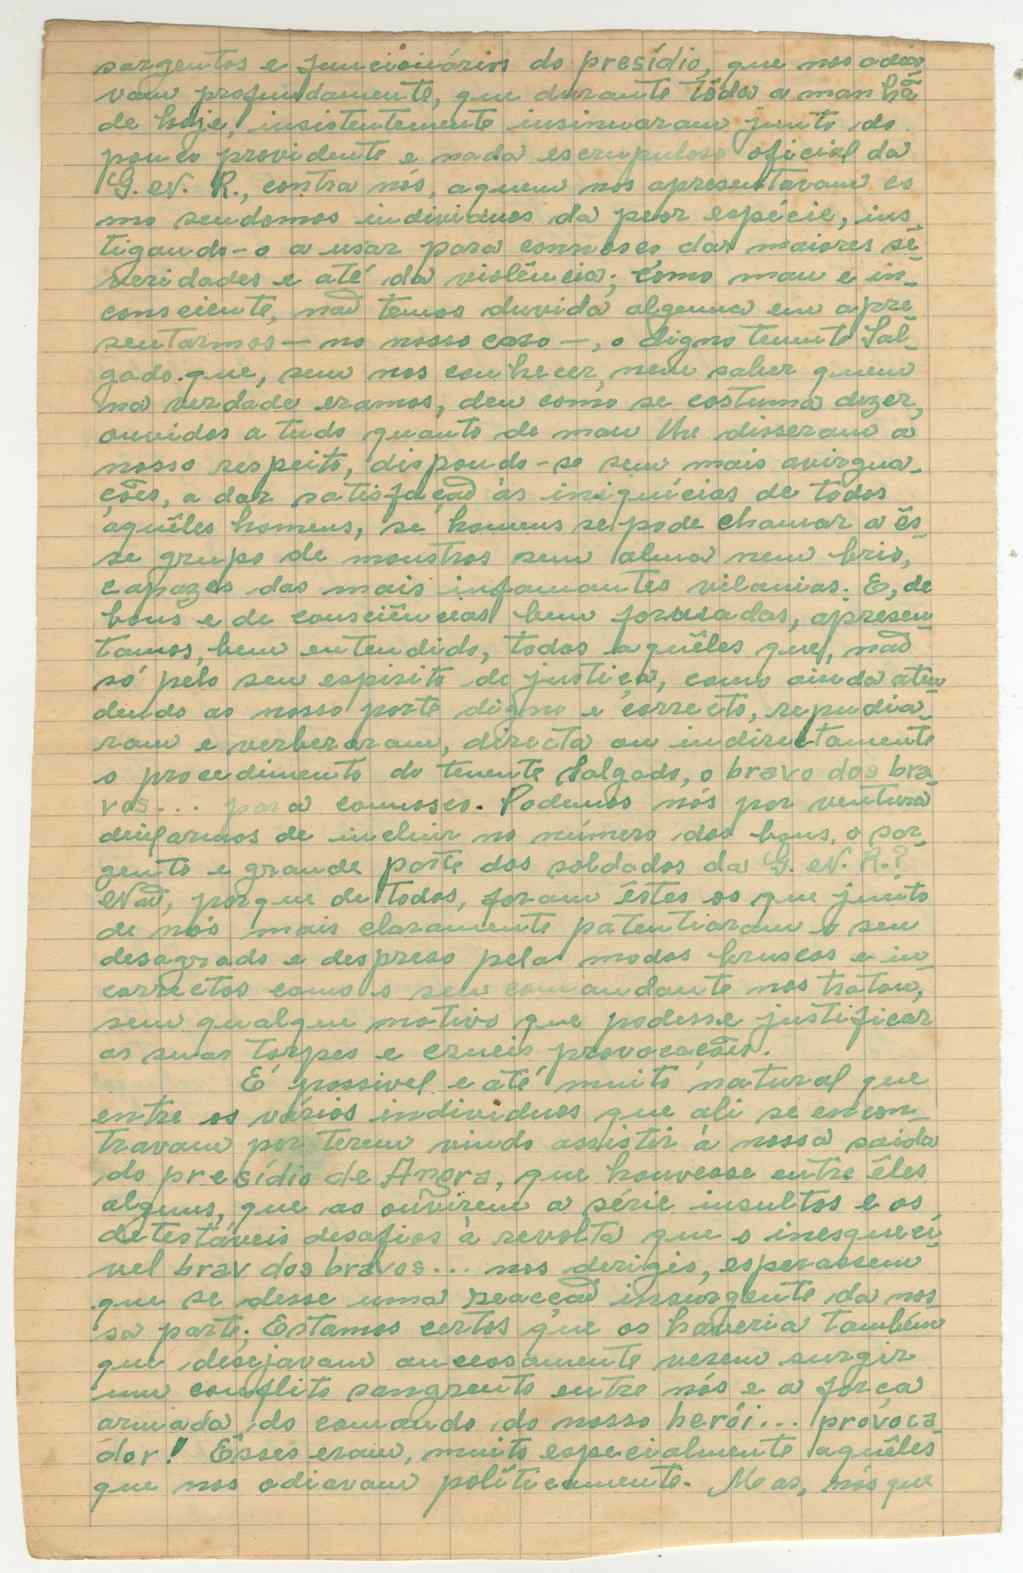 sargentos e funcionários do presídio, que nos odia
vam profundamente, que durante tôda a manhã
de hoje, insistentemente insinuaram junto do
pouco providente e nada escrupuloso oficial da
G. N. R., contra nós, aquem nos apresentavam co
mo sendomos individuos da peor espécie, ins
tigando-o a usar para connosco das maiores se
veridades e até da violência; como mau e in-
consciente, não temos duvida alguma em apre
sentarmos — no nosso caso —, o digno tenente Sal-
gado que, sem nos conhecer, nem saber quem
na verdade eramos, deu como se costuma dizer,
ouvidos a tudo quanto de mau lhe disseram a
nosso respeito, dispondo-se sem mais avirgua-
ções, a dar satisfação ás iniquícias de todos
aquêles homens, se homens se pode chamar a ês-
se grupo de monstros sem alma nem brio,
capazes das mais infamantes vilanias. E, de
bons e de consciências bem formadas, apresen
tamos, bem entendido, todos aquêles que, não
só pelo seu espirito de justiça, como ainda aten
dendo ao nosso porte digno e correcto, repudia-
ram e verberaram, directa ou indirectamente
o procedimento do tenente Salgado, o bravo dos bra-
vos... para connosco. Podemos nós por ventura
deixarmos de incluir no número dos bons, o sar-
gento e grande parte dos soldados da G. N. R.?
Não, porque de todos, foram êstes os que junto
de nós mais claramente patentiaram o seu
desagrado e despreso pelos modos bruscos e in-
correctos como o seu comandante nos tratou,
sem qualquer motivo que podesse justificar
as suas torpes e crueis provocações.
É possivel e até muito natural que
entre os vários individuos que ali se encon
travam por terem vindo assistir á nossa saida
do presídio de Angra, que houvesse entre êles
alguns, que ao ouvirem a série insultos e os
detestáveis desafios á revolta que o inesqueci
vel brav dos bravos... nos dirigio, esperassem
que se desse uma reacção insurgente da nos
sa parte; Estamos certos que os haveria também
que desejavam anceosamente verem surgir
um conflito sangrento entre nós e a força
armada do comando do nosso herói... provoca
dor! Esses eram, muito especialmente aquêles
que nos odiavam politicamente. Mas, nós que